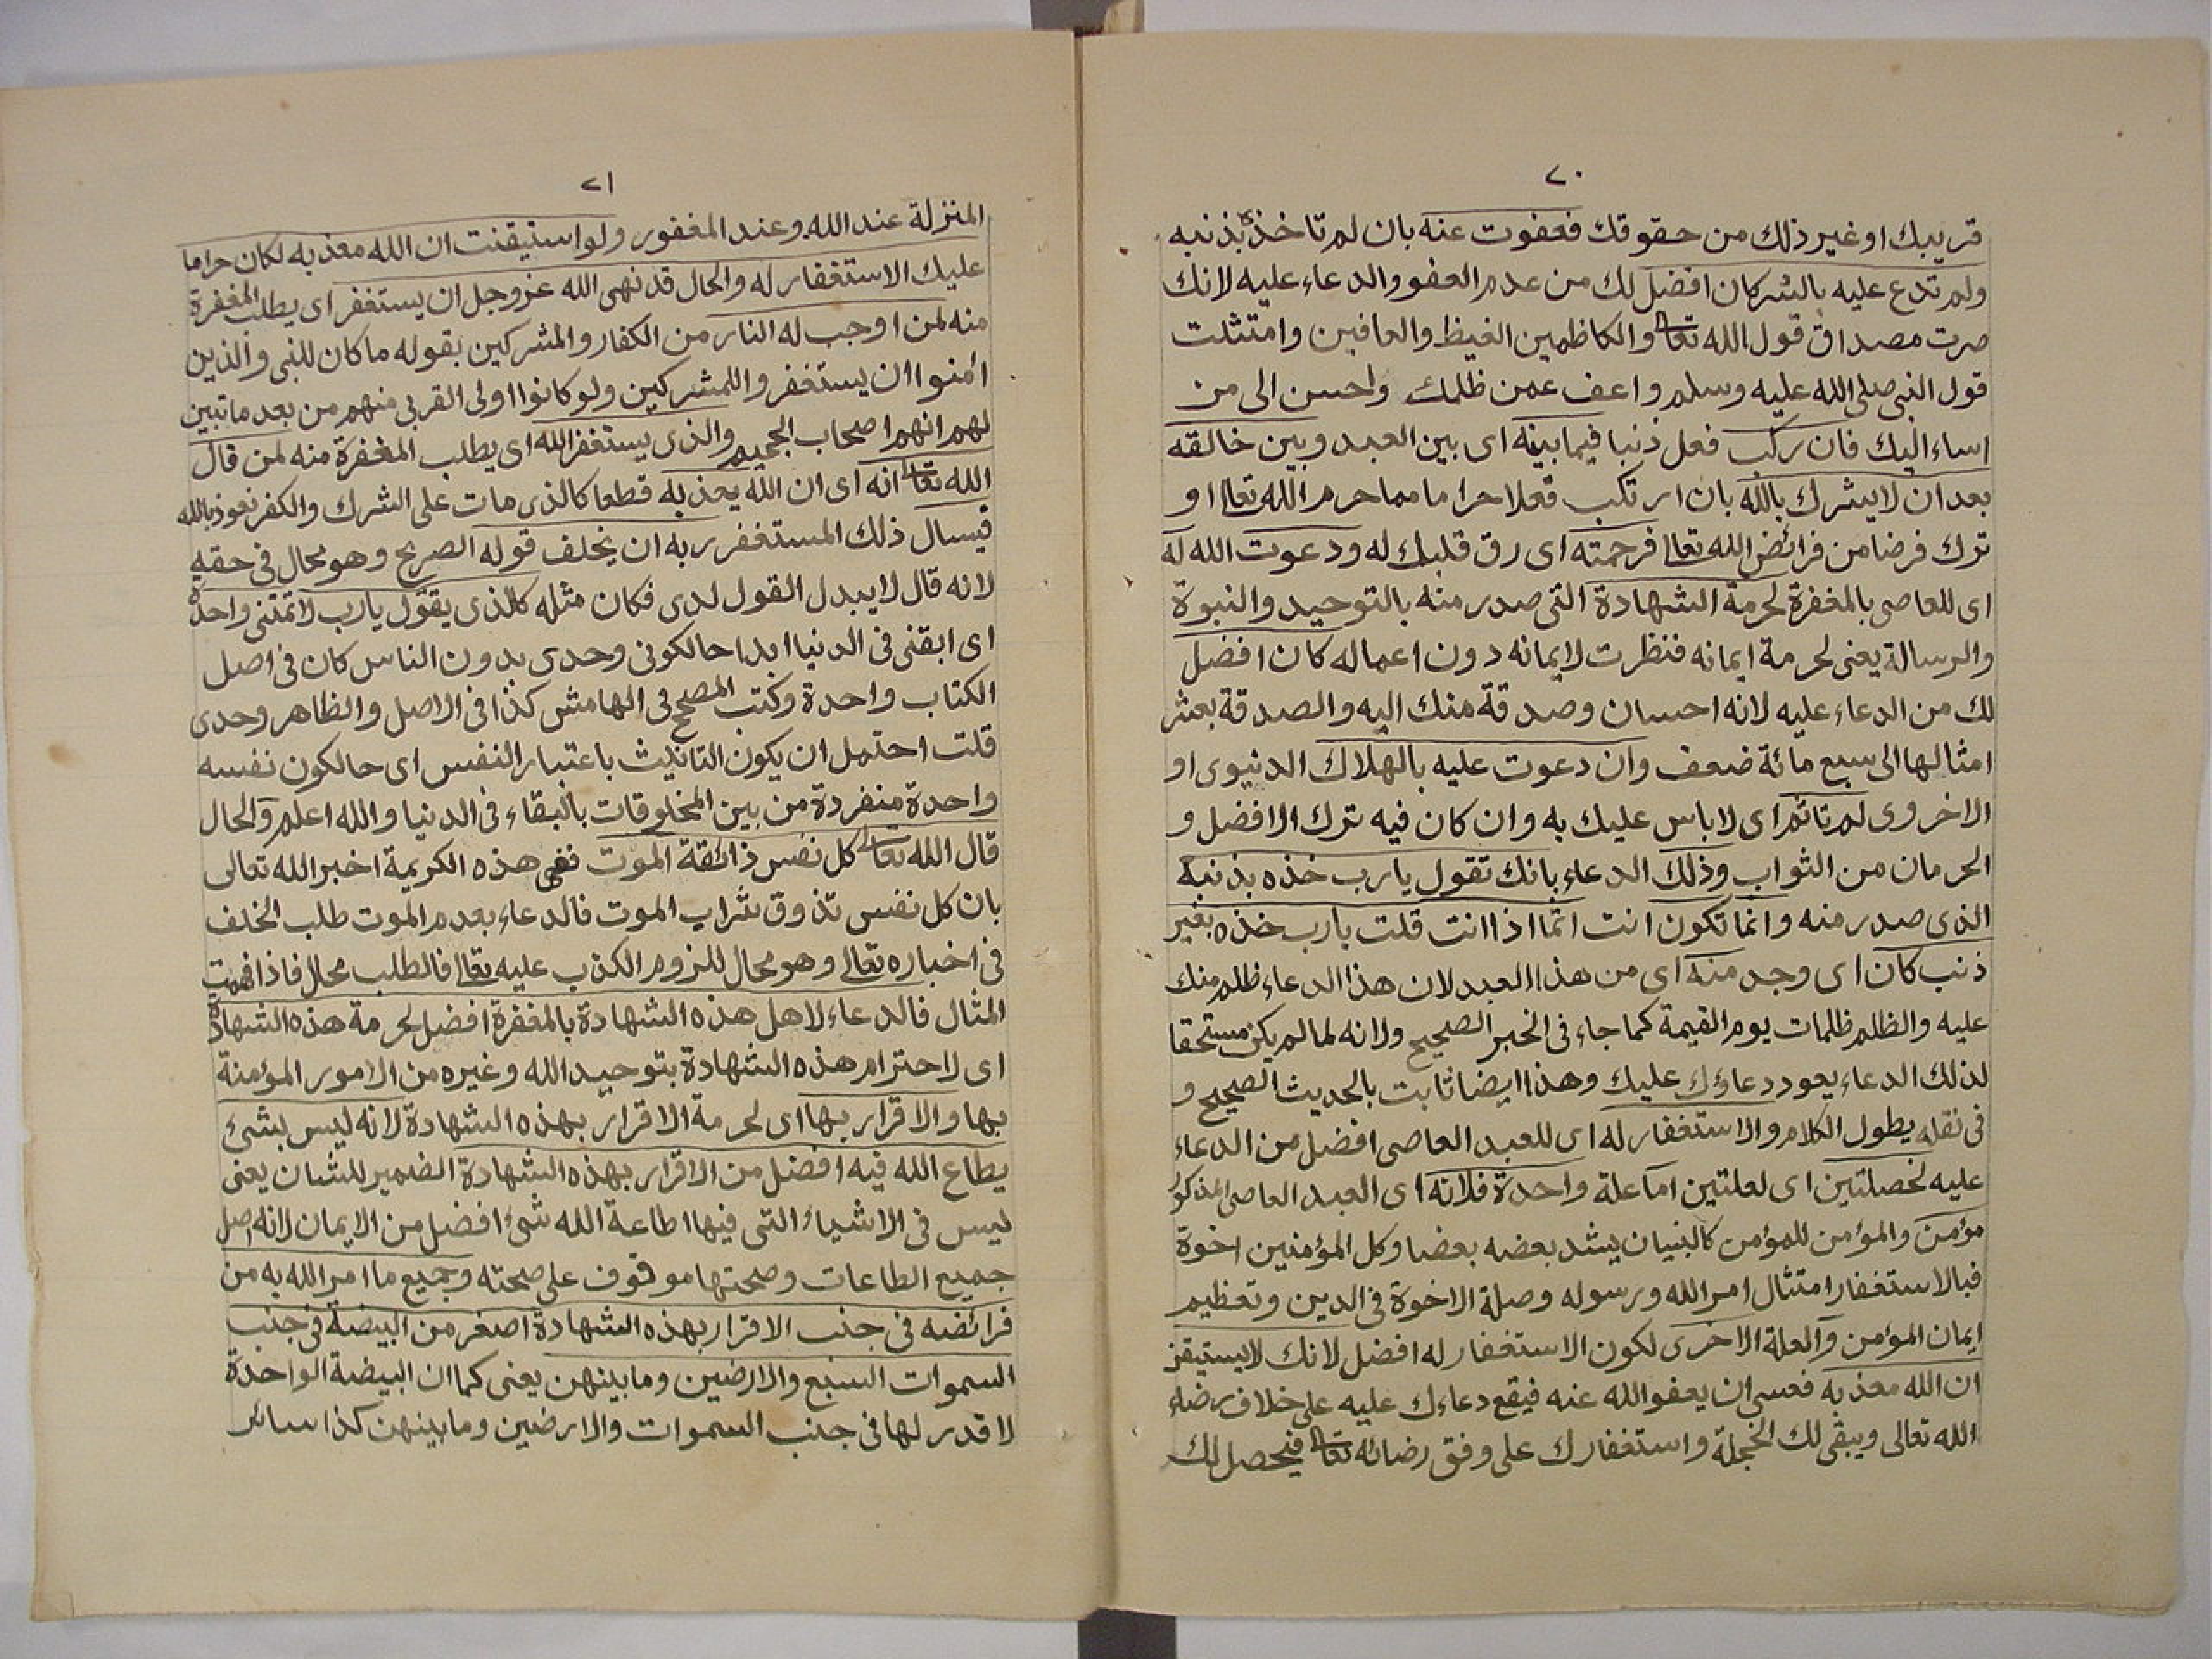 ٧٠
قريبك او غير ذلك من حقوقك فعفوت عنه بان لم تاخذه بذنبه
ولم تدع عليه بالشر كان افضل لك من عدم العفو والدعاء عليه لانك
صرت مصداق قول الله تعالى والكاظمين الغيظ والعافين وامتثلت
قول النبى صلى الله عليه وسلم واعف عمن ظلمك واحسن الى من
اساء اليك فان ركب فعل ذنبا فيما بينه اى بين العبد وبين خالقه
بعد ان لا يشرك بالله بان ارتكب فعلا حراما مما حرم الله تعالى او
ترك فرضا من فرائض الله تعالى فرحمته اى رق قلبك له ودعوت الله له
اى للعاصى بالمغفرة لحرمة الشهادة التى صدر منه بالتوحيد والنبوة
والرسالة يعنى لحرمة ايمانه فنظرت لايمانه دون اعماله كان افضل
لك من الدعاء عليه لانه احسان وصدقة منك اليه والصدقة بعشر
امثالها الى سبع مائة ضعف وان دعوت عليه بالهلاك الدنيوى او
الاخروى لم تاثم اى لا باس عليك به وان كان فيه ترك الافضل و
الحرمان من الثواب وذلك الدعاء بانك تقول يارب خذه بذنبه
الذى صدر منه وانما تكون انت اثما اذا انت قلت يارب خذه بغير
ذنب كان اى وجد منه اى من هذا العبد لان هذا الدعاء ظلم منك
عليه والظلم ظلمات يوم القيمة كما جاء فى الخبر الصحيح ولانه لما لم يكن مستحقا
لذلك الدعاء يعود دعاؤك عليك وهذا ايضا ثابت بالحديث الصحيح و
فى نقله يطول الكلام والاستغفار له اى للعبد العاصى افضل من الدعاء
عليه لخصلتين اى لعلتين اما علة واحدة فلانه اى العبد العاصى المذكور
مؤمن والمؤمن للمؤمن كالبنيان يشد بعضه بعضا وكل المؤمنين اخوة
فبالاستغفار امتثال امر الله ورسوله وصلة الاخوة فى الدين وتعظيم
ايمان المؤمن والعلة الاخرى لكون الاستغفار له افضل لانك لا تستيقن
ان الله معذبه فعسى ان يعفو الله عنه فيقع دعاءك عليه على خلاف رضاء
الله تعالى ويبقى لك الخجلة واستغفارك على وفق رضائه تعالى فيحصل لك
٧١
المنزلة عند الله وعند المغفور ولو استيقنت ان الله معذبه لكان حراما
عليك الاستغفار له والحال قد نهى الله عز وجل ان يستغفر اى يطلب المغفرة
منه لمن اوجب له النار من الكفار والمشركين بقوله ما كان للنبى والذين
امنوا ان يستغفروا للمشركين ولو كانوا اولى القربى منهم من بعد ما تبين
لهم انهم اصحاب الجحيم والذى يستغفر الله اى يطلب المغفرة منه لمن قال
الله تعالى انه اى ان الله يعذبه قطعا كالذى مات على الشرك والكفر نعوذ بالله
فيسال ذلك المستغفر ربه ان يخلف قوله الصريح وهو محال فى حقه
لانه قال لا يبدل القول لدى فكان مثله كالذى يقول يارب لا تمتنى واحدة
اى ابقنى فى الدنيا ابدا حالكونى وحدى بدون الناس كان فى اصل
الكتاب واحدة وكتب المصحح فى الهامش كذا فى الاصل والظاهر وحدى
قلت احتمل ان يكون التانيث باعتبار النفس اى حالكون نفسه
واحدة منفردة من بين المخلوقات بالبقاء فى الدنيا والله اعلم والحال
قال الله تعالى كل نفس ذائقة الموت ففى هذه الكريمة اخبر الله تعالى
بان كل نفس تذوق شراب الموت فالدعاء بعدم الموت طلب الخلف
فى اخباره تعالى وهو محال للزوم الكذب عليه تعالى فالطلب محال فاذا فهمت
المثال فالدعاء لاهل هذه الشهادة بالمغفرة افضل لحرمة هذه الشهادة
اى لاحترام هذه الشهادة بتوحيد الله وغيره من الامور المؤمنة
بها والاقرار بها اى لحرمة الاقرار بهذه الشهادة لانه ليس بشئ
يطاع الله فيه افضل من الاقرار بهذه الشهادة الضمير للشان يعنى
ليس فى الاشياء التى فيها اطاعة الله شئ افضل من الايمان لانه اصل
جميع الطاعات وصحتها موقوف على صحته وجميع ما امر الله به من
فرائضه فى جنب الاقرار بهذه الشهادة اصغر من البيضة فى جنب
السموات السبع والارضين وما بينهن يعنى كما ان البيضة الواحدة
لا قدر لها فى جنب السموات والارضين وما بينهن كذا سائر